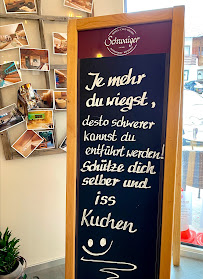 Schwaiger
Je mehr
du wiegst,
desto schwerer
kannst du
entführt werden!
Schütze dich
selber und
iss
Kuchen